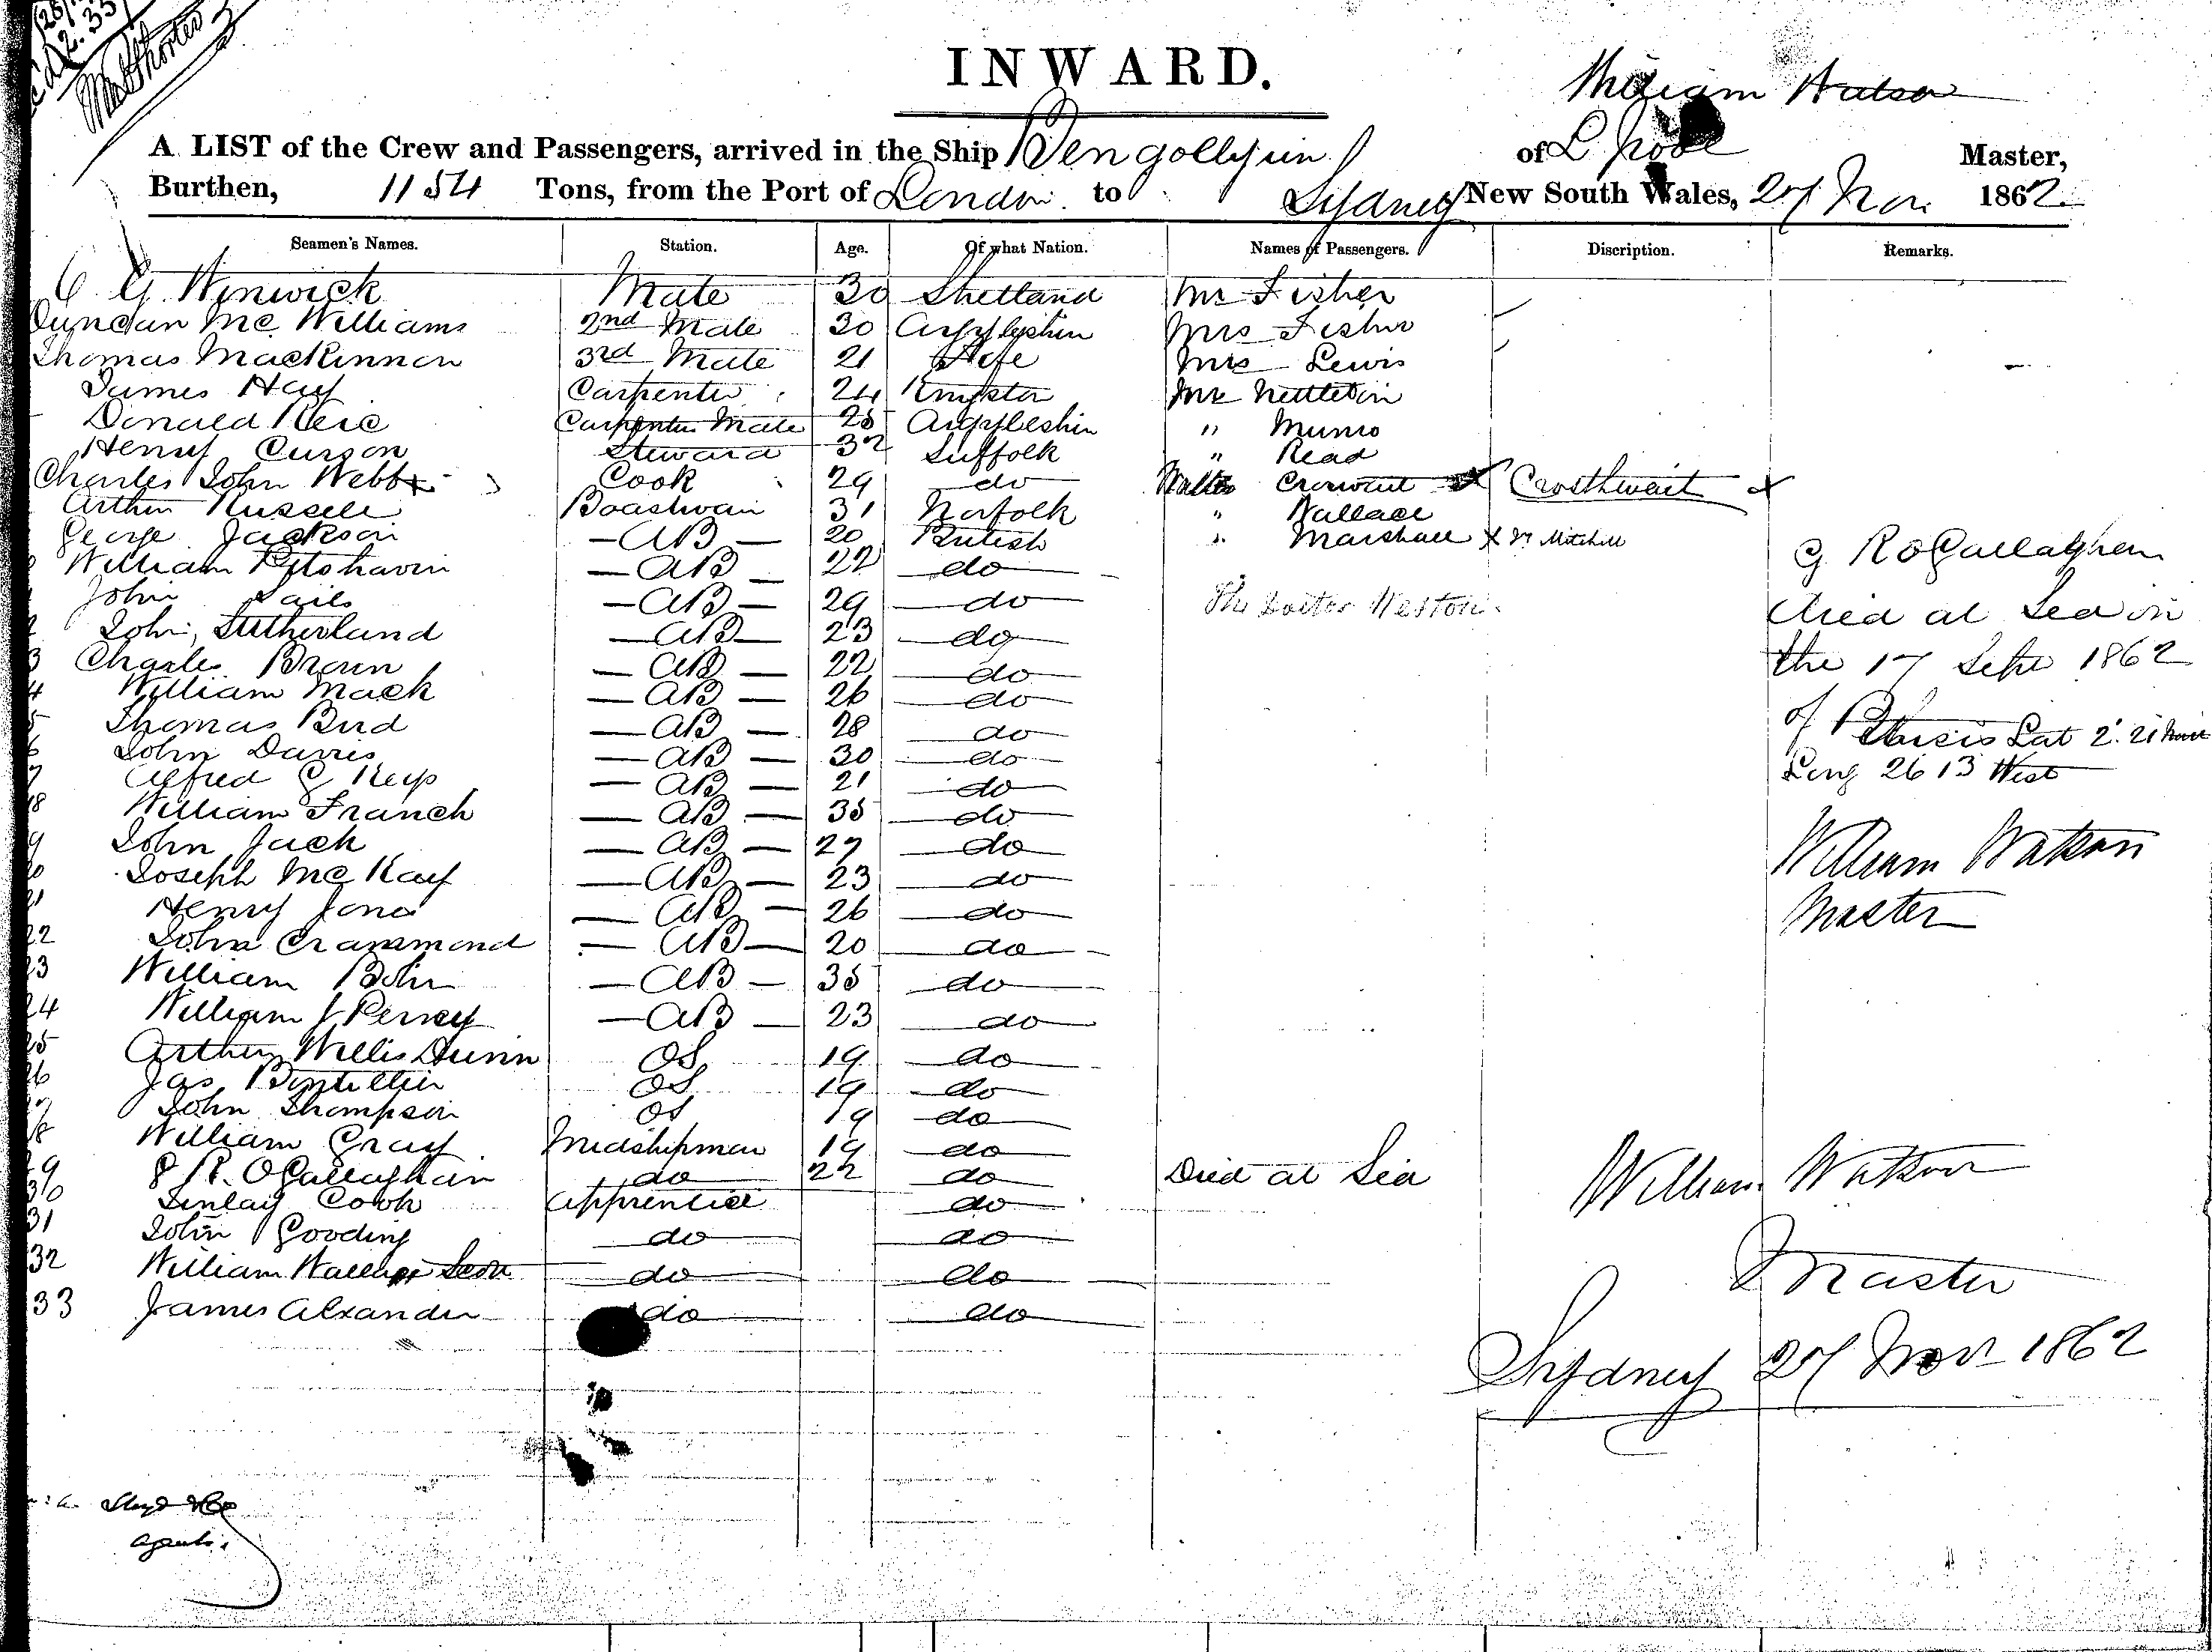 INWARD.
William Watson
A LIST of the Crew and Passengers, arrived in the Ship of L'pool Master,
Burthen, 1154 Tons, from the Port of London to Sydney New South Wales, 27 Nov. 1862
Seamen's Names. Station. Age. Of what Nation. Names of Passengers. Discription. Remarks.
Mate 30 Shetland Mr Fisher
Duncan Mc Williams 2nd Mate 30 Argyleshire Mrs Fisher
Thomas MacKinnon 3rd Mate 21 Fife Mrs Lewis
James Hay Carpenter 24 Mr Nettleton
Donald Carpenter Mate 25 Argyleshire " Munro
Henry Curson Steward 32 Suffolk " Read
Charles John Webb Cook 29 do Crosthwait
Arthur Russell 31 Norfolk " Wallace
George Jackson AB 20 British " Marshall x Mitchell
William AB 22 do
John Sails AB 29 do The Doctor Weston
John Sutherland AB 23 do
3 Charles Brown AB 22 do
4 William Mack AB 26 do
5 Thomas Bird AB 28 do
6 John Davies AB 30 do
7 Alfred C Keys AB 21 do
18 William Franch AB 35 do
9 John Jack AB 27 do
20 Joseph Mc Kay AB 23 do
21 Henry Jones AB 26 do
22 John Crammond AB 20 do
23 William AB 35 do
24 William J AB 23 do
25 Arthur Willis Dunn OS 19 do
26 Jas OS 19 do
27 John Thompson OS 19 do
28 William Gray Midshipman 19 do
29 R. OCallaghan do 22 do Died at Sea
30 Finlay Cook Apprentice do
31 John Gooding do do
32 William do do
33 James Alxander do do
G R OCallaghan
died at Sea on
the 17 Sept 1862
of Pthisis Lat 2. 21
Long 26 13 West
William Watson
Master
William Watson
Master
Sydney 27 Nov 1862
Agents